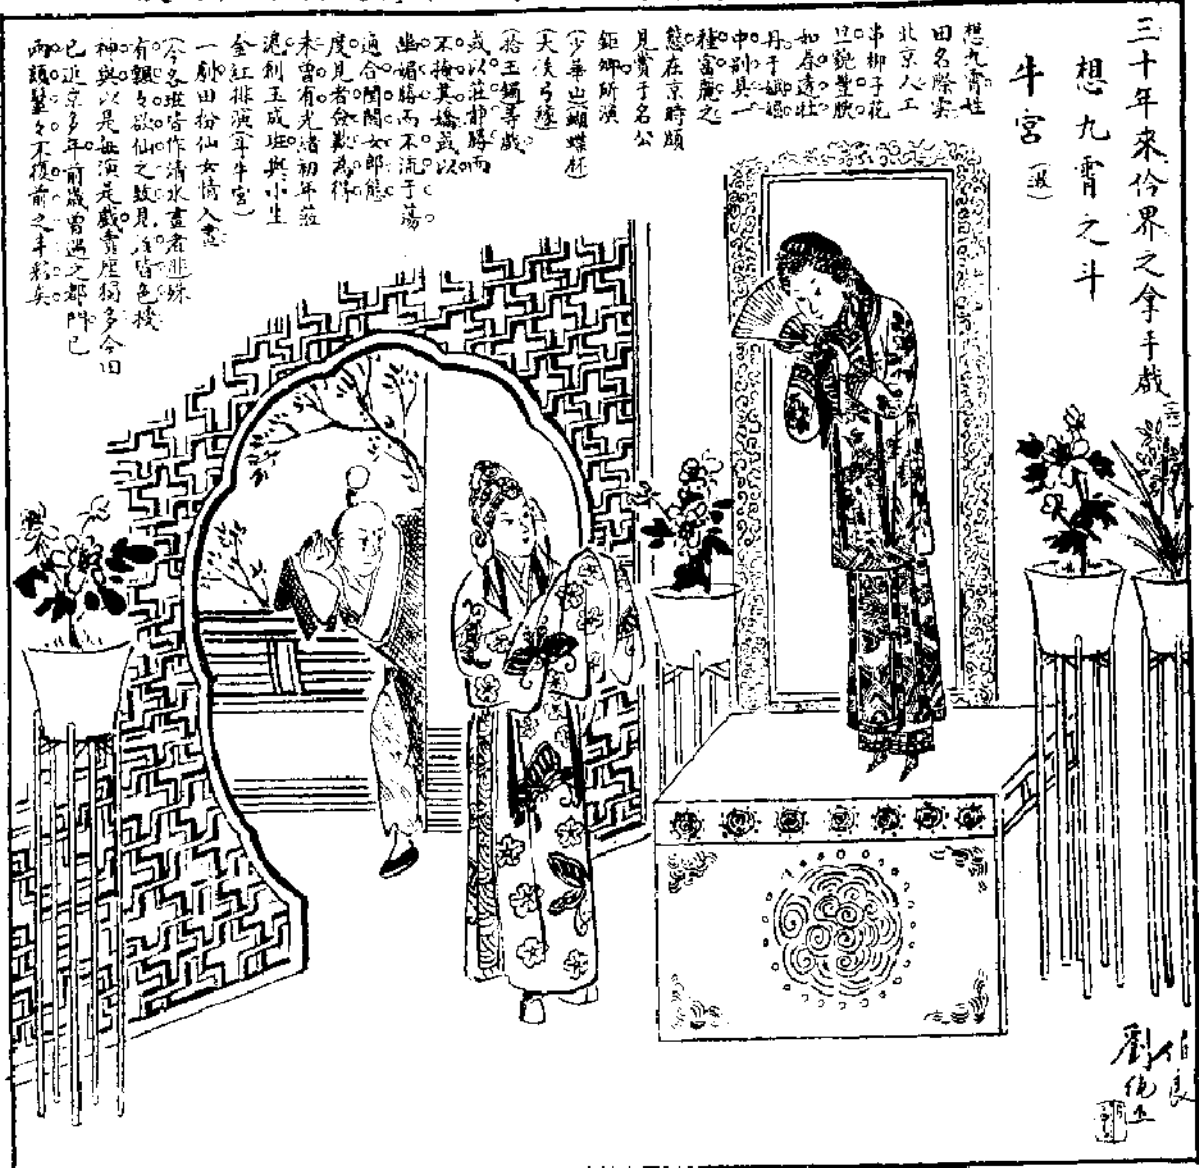 三十年來伶界之拿手戲
想九霄之斗
牛宮
想九霄姓
田名際雲
北京人工
串梆子花
旦貌豐腴
如春透牡
丹于嫵媚
中別具一
種富麗之
態在京時頗
見賞于名公
鉅卿所演
(少華山)(蝴蝶杯)
(大漢弓緣)
(拾玉鐲)等戲
或以莊靜勝而
不掩其嬌或以
幽媚勝而不流于蕩
適合閨閣女郎態
度見者僉歎為得
未曾有光緒初年蒞
滬創玉成班與小生
金紅排演(斗牛宮)
一劇田扮仙女情入畫
(今名班皆作清水畫者非)姝
有飄々欲仙之致見者皆色授
神與以是每演是戲賣座獨多今田
已返京多年前歲曾遇之都門已
兩頭鬢々不復前之丰彩矣
伯良
劉